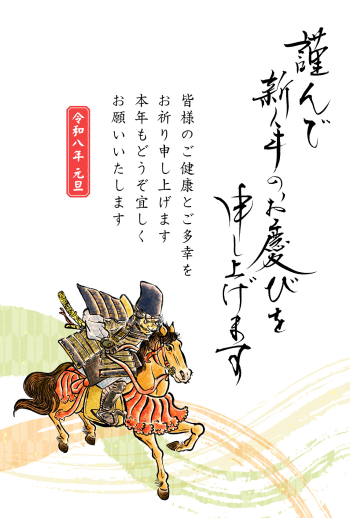 謹んで
新年のお慶びを
申し上げます
皆様のご健康とご多幸を
お祈り申し上げます
本年もどうぞ宜しく
お願いいたします
令和八年 元旦